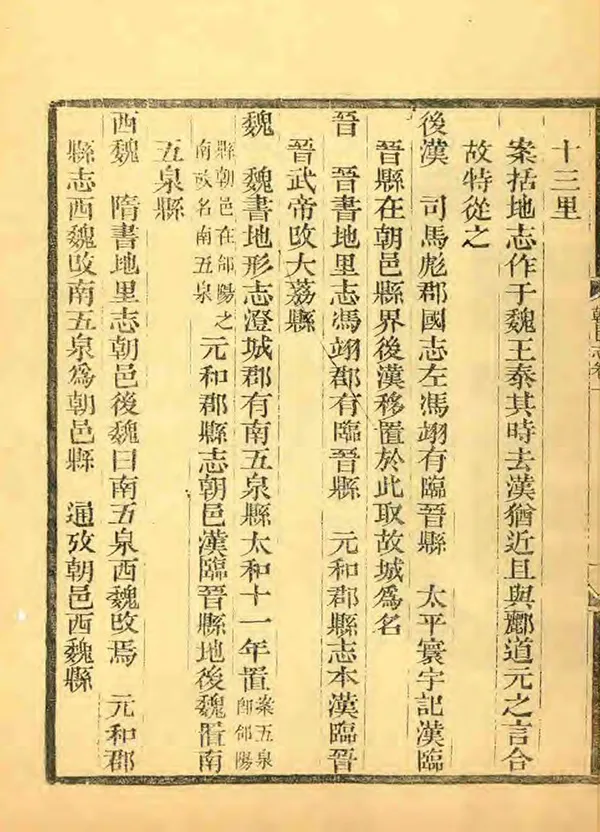 十三里
案括地志作于魏王泰其時去漢猶近且與酈道元之言合
故特從之
後漢　司馬彪郡國志左馮翊有臨晉縣　太平寰宇記漢臨
晉縣在朝邑縣界後漢移置於此取故城爲名
晉　晉書地里志馮翊郡有臨晉縣　元和郡縣志本漢臨晉
晉武帝攺大荔縣
魏　魏書地形志澄城郡有南五泉縣太和十一年置案五泉卽郃陽
縣朝邑在郃陽之南故名南五泉　元和郡縣志朝邑漢臨晉縣地後魏置南
五泉縣
西魏　隋書地里志朝邑後魏曰南五泉西魏攺焉　元和郡
縣志西魏攺南五泉爲朝邑縣　通攷朝邑西魏縣